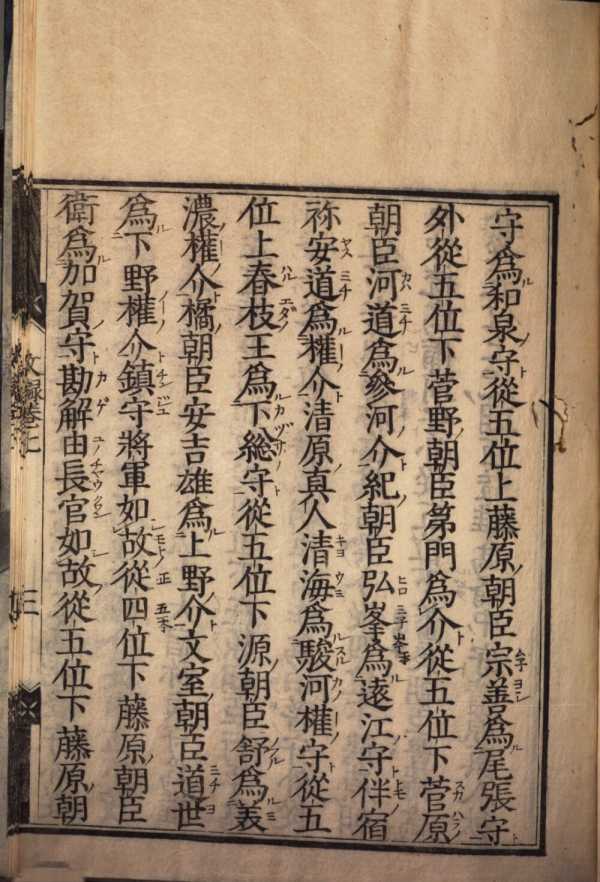 守爲和泉守從五位上藤原朝臣宗善爲尾張守
外從五位下菅野朝臣第門爲介從五位下菅原
朝臣河道爲參河介紀朝臣弘峯爲遠江守伴宿
祢安道爲權介清原真人清海爲駿河權守從五
位上春枝王爲下總守從五位下源朝臣舒爲美
濃權介橘朝臣安吉雄爲上野介文室朝臣道世
爲下野權介鎮守將軍如故從四位下藤原朝臣
衛爲加賀守勘解由長官如故從五位下藤原朝
文録卷上
三